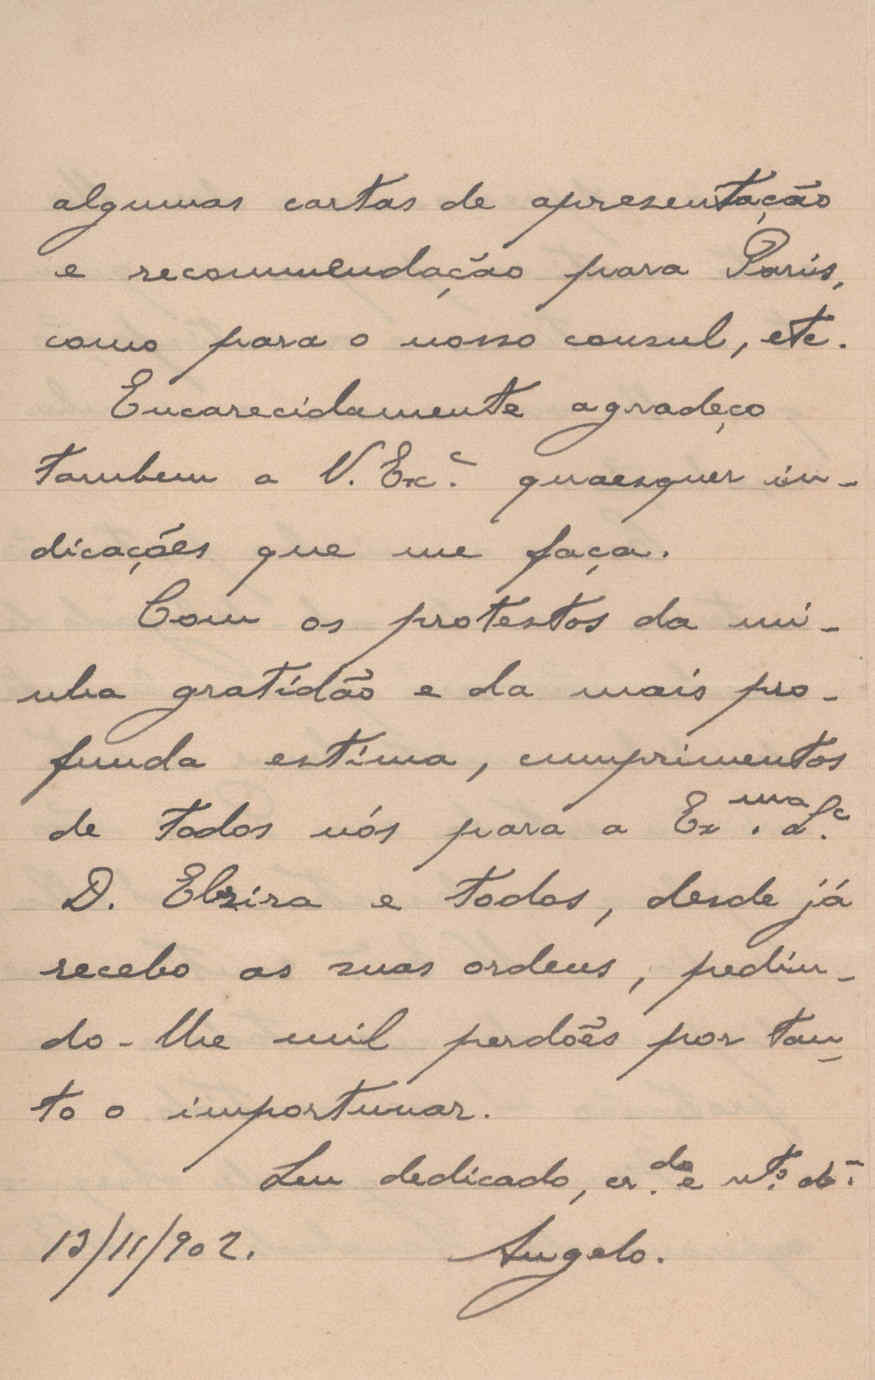 algumas cartas de apresentação
e recommendação para Paris,
como para o nosso consul, etc.
Encarecidamente agradeço
tambem a V. Exc.ᶜ quaesquer in-
dicações que me faça.
Com os protestos da mi-
nha gratidão e da mais pro-
funda estima, cumprimentos
de todos nós para a Ex.ᵐᵃ
D. Elzira e todos, desde já
recebo as suas ordens, pedin-
do-lhe mil perdões por tan-
to o importunar.
Seu dedicado, cr.ᵈᵒ e
13/11/902. Angelo.